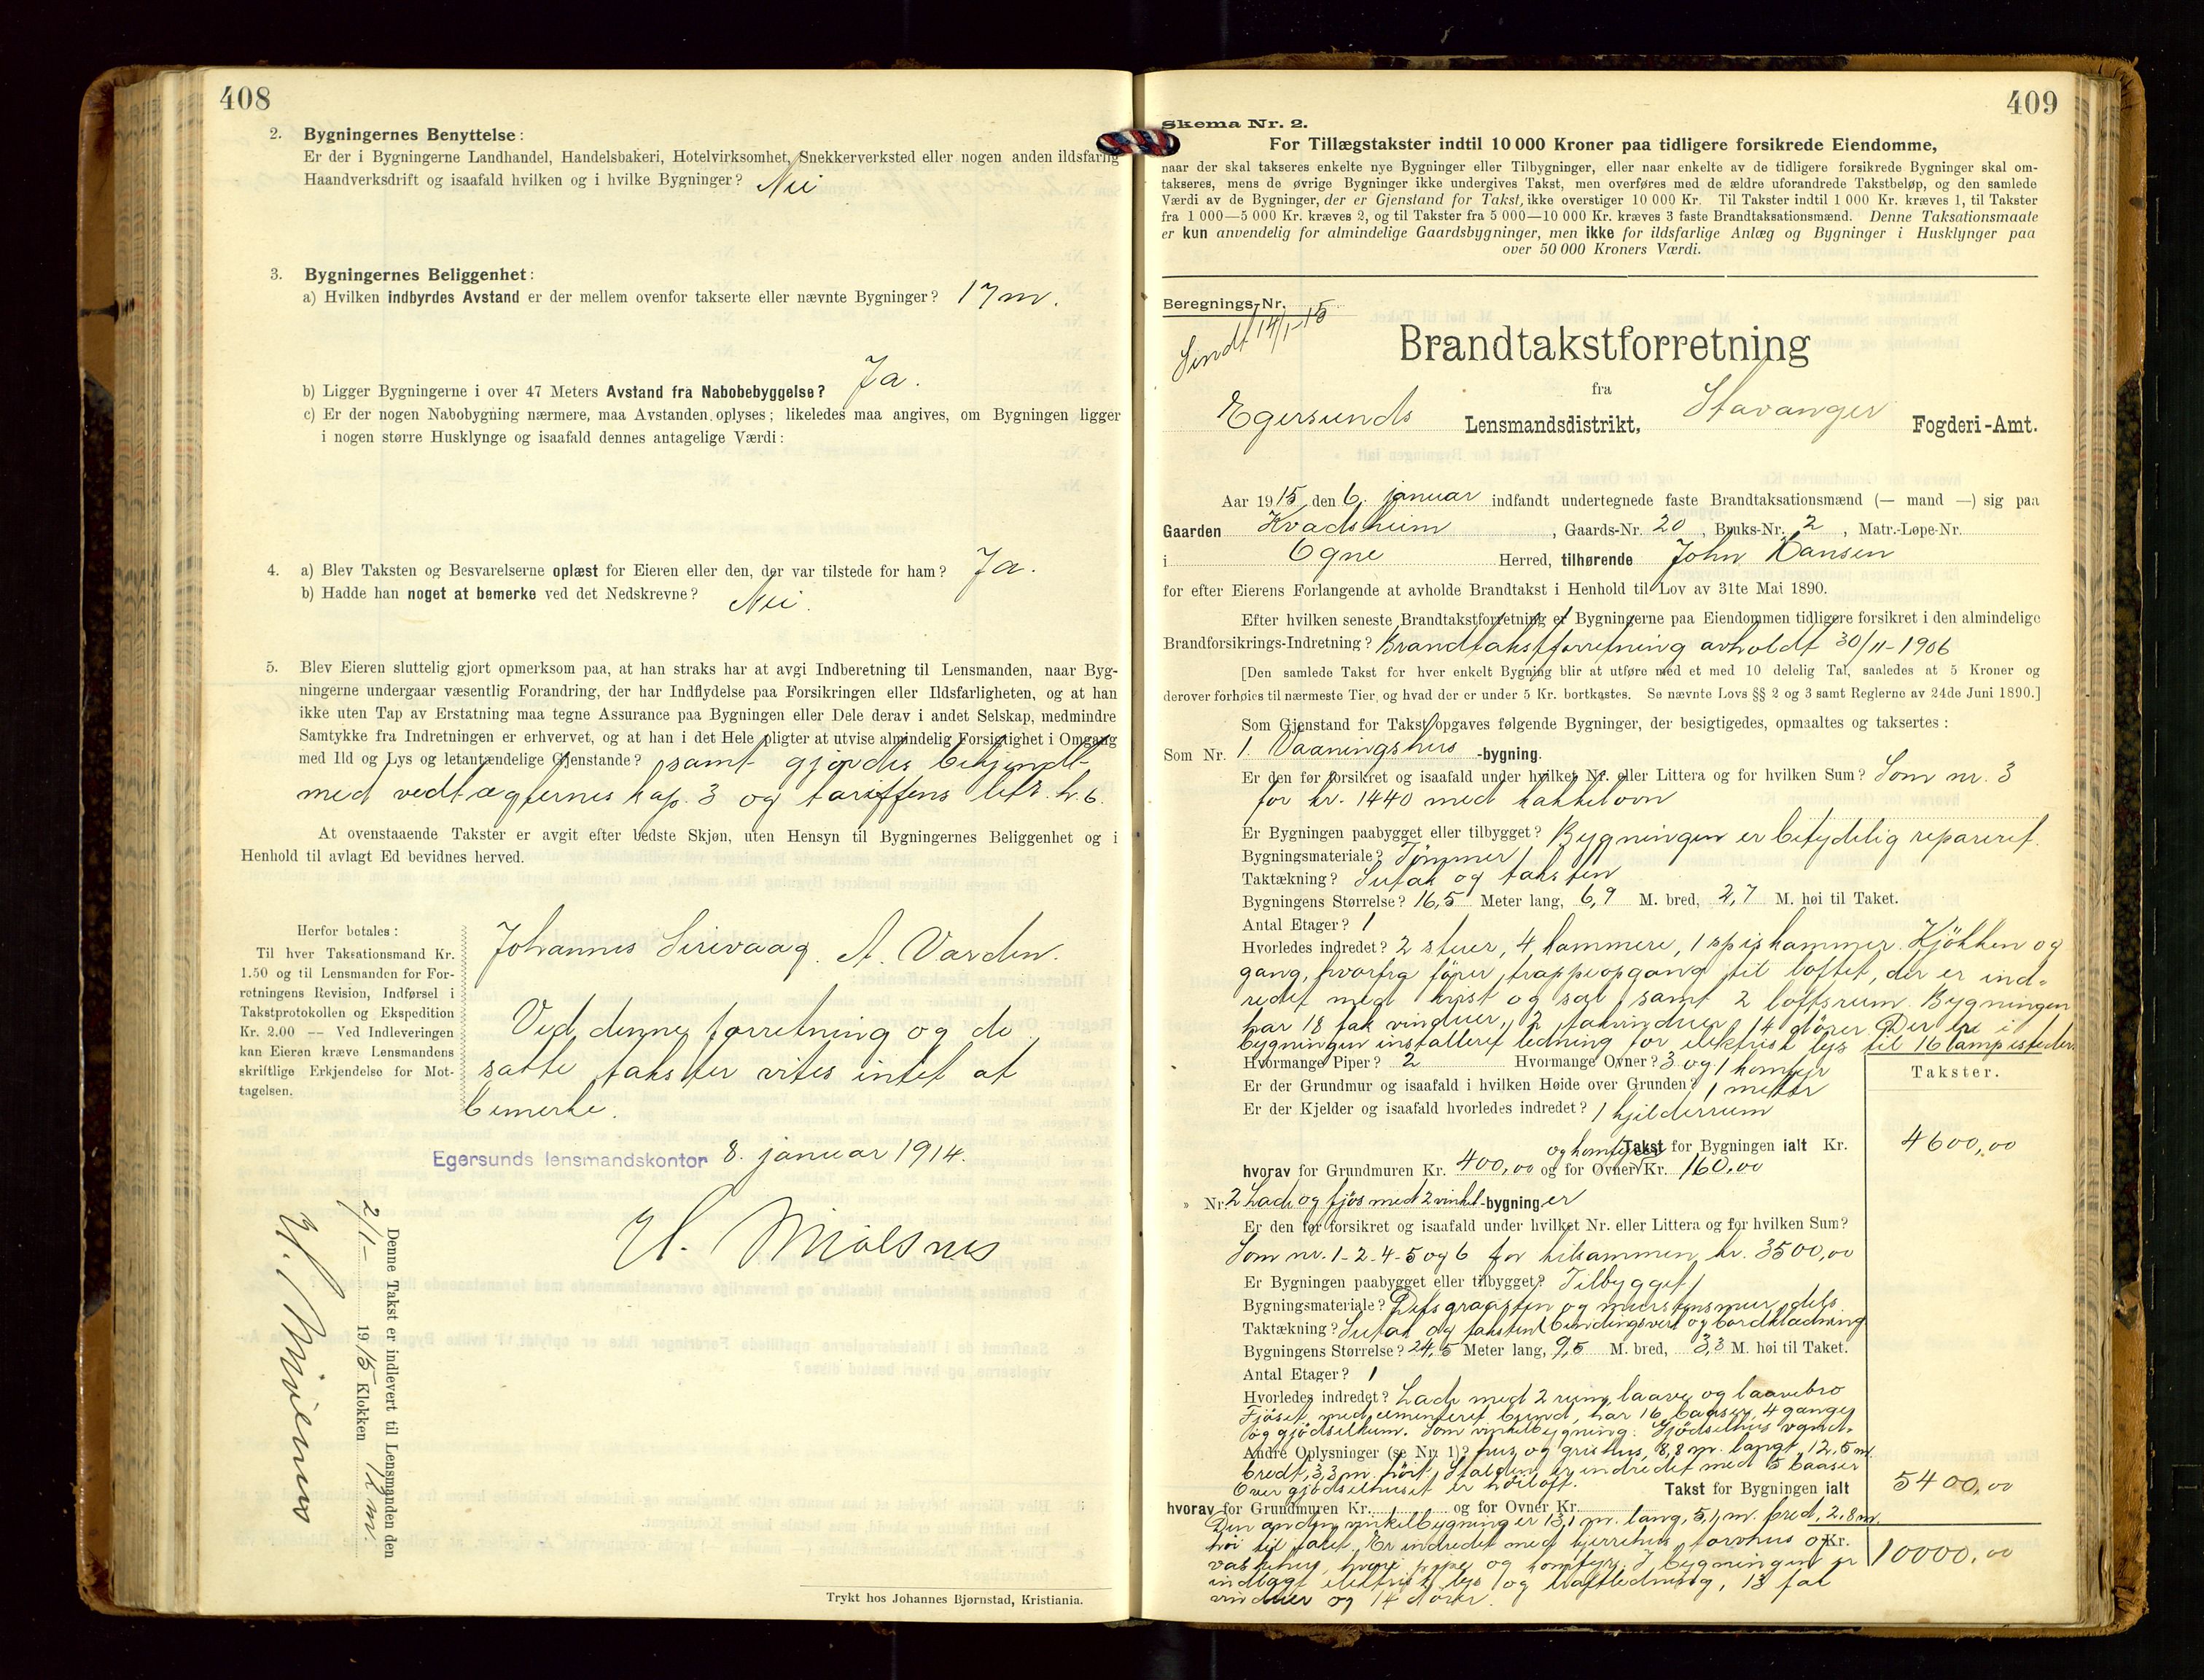 408
2. Bygningernes Benyttelse:
Er der i Bygningerne Landhandel, Handelsbakeri, Hotelvirksomhet, Snekkerverksted eller nogen anden ildsfarlig
Haandverksdrift og isaafald hvilken og i hvilke Bygninger? Nei
3. Bygningernes Beliggenhet:
a) Hvilken indbyrdes Avstand er der mellem ovenfor takserte eller nævnte Bygninger? 17 m.
b) Ligger Bygningerne i over 47 Meters Avstand fra Nabobebyggelse? Ja.
c) Er der nogen Nabobygning nærmere, maa Avstanden oplyses; likeledes maa angives, om Bygningen ligger
i nogen større Husklynge og isaafald dennes antagelige Værdi:
4. a) Blev Taksten og Besvarelserne oplæst for Eieren eller den, der var tilstede for ham? Ja.
b) Hadde han noget at bemerke ved det Nedskrevne? Nei.
5. Blev Eieren sluttelig gjort opmerksom paa, at han straks har at avgi Indberetning til Lensmanden, naar Byg-
ningerne undergaar væsentlig Forandring, der har Indflydelse paa Forsikringen eller Ildsfarligheten, og at han
ikke uten Tap av Erstatning maa tegne Assurance paa Bygningen eller Dele derav i andet Selskap, medmindre
Samtykke fra Indretningen er erhvervet, og at han i det Hele pligter at utvise almindelig Forsigtighet i Omgang
med Ild og Lys og letantændelige Gjenstande? samt gjordes bekjendt
med vedtægternes kap. 3 og tariffens litr. h. 6.
At ovenstaaende Takster er avgit efter bedste Skjøn, uten Hensyn til Bygningernes Beliggenhet og i
Henhold til avlagt Ed bevidnes herved.
Herfor betales:
Til hver Taksationsmand Kr.
1.50 og til Lensmanden for For-
retningens Revision, Indførsel i
Takstprotokollen og Ekspedition
Kr. 2.00 — Ved Indleveringen
kan Eieren kræve Lensmandens
skriftlige Erkjendelse for Mot-
tagelsen.
Johannes Sirevaag. A. Varden.
Ved denne forretning og de
satte takster vites intet at
bemerke.
Egersunds lensmandskontor 8. januar 1914.
H. Mjølsnes
Denne Takst er indlevert til Lensmanden den
2/1 - 1915 Klokken 12 m.
H. Mjølsnes
Trykt hos Johannes Bjørnstad, Kristiania.
409
Skema Nr. 2.
For Tillægstakster indtil 10 000 Kroner paa tidligere forsikrede Eiendomme,
naar der skal takseres enkelte nye Bygninger eller Tilbygninger, eller naar enkelte av de tidligere forsikrede Bygninger skal om-
takseres, mens de øvrige Bygninger ikke undergives Takst, men overføres med de ældre uforandrede Takstbeløp, og den samlede
Værdi av de Bygninger, der er Gjenstand for Takst, ikke overstiger 10 000 Kr. Til Takster indtil 1 000 Kr. kræves 1, til Takster
fra 1 000—5 000 Kr. kræves 2, og til Takster fra 5 000—10 000 Kr. kræves 3 faste Brandtaksationsmænd. Denne Taksationsmaate
er kun anvendelig for almindelige Gaardsbygninger, men ikke for ildsfarlige Anlæg og Bygninger i Husklynger paa
over 50 000 Kroners Værdi.
Beregnings-Nr.
Sendt 14/1-15
Brandtakstforretning
fra
Egersunds Lensmandsdistrikt, Stavanger Fogderi-Amt.
Aar 1915 den 6. januar indfandt undertegnede faste Brandtaksationsmænd (— mand —) sig paa
Gaarden Kvadsheim, Gaards-Nr. 20, Bruks-Nr. 2, Matr.-Løpe-Nr.
i Ogne Herred, tilhørende John Hansen
for efter Eierens Forlangende at avholde Brandtakst i Henhold til Lov av 31te Mai 1890.
Efter hvilken seneste Brandtakstforretning er Bygningerne paa Eiendommen tidligere forsikret i den almindelige
Brandforsikrings-Indretning? Brandtakstforretning avholdt 30/11-1906
[Den samlede Takst for hver enkelt Bygning blir at utføre med et med 10 delelig Tal, saaledes at 5 Kroner og
derover forhøies til nærmeste Tier, og hvad der er under 5 Kr. bortkastes. Se nævnte Lovs §§ 2 og 3 samt Reglerne av 24de Juni 1890.]
Som Gjenstand for Takst opgaves følgende Bygninger, der besigtigedes, opmaaltes og taksertes:
Som Nr. 1. Vaaningshus -bygning.
Er den før forsikret og isaafald under hvilket Nr. eller Littera og for hvilken Sum? Som nr. 3
for kr. 1440 med kakkelovn
Er Bygningen paabygget eller tilbygget? Bygningen er betydelig reparert.
Bygningsmateriale? Tømmer
Taktækning? Sutak og taksten
Bygningens Størrelse? 16,5 Meter lang, 6,9 M. bred, 2,7 M. høi til Taket.
Antal Etager? 1
Hvorledes indredet? 2 stuer, 4 kammere, 1 spiskammer. Kjøkken og
gang, hvorfra fører trappeopgang til loftet, der er ind-
redet med kvist og sal, samt 2 loftsrum. Bygningen
har 18 fak vinduer, 2 takvinduer, 14 dører. Der er i
bygningen installeret ledning for elektrisk lys til 16 lampesteder.
Hvormange Piper? 2 Hvormange Ovner? 3 og 1 komfyr
Er der Grundmur og isaafald i hvilken Høide over Grunden? 1 meter
Er der Kjelder og isaafald hvorledes indredet? 1 kjelderrum
Takster.
Takst for Bygningen ialt Kr. 4600,00
hvorav for Grundmuren Kr. 400,00 og for Ovner og komfyrer Kr. 160,00
» Nr. 2 Lade og fjøs med 2 vinkel -bygninger
Er den før forsikret og isaafald under hvilket Nr. eller Littera og for hvilken Sum?
Som nr. 1-2-4-5 og 6 for tilsammen kr. 3500,00
Er Bygningen paabygget eller tilbygget? Tilbygget
Bygningsmateriale? Dels graasten og murstensmur, dels
Taktækning? Sutak og taksten bindingsverk og bordklædning
Bygningens Størrelse? 24,5 Meter lang, 9,5 M. bred, 3,3 M. høi til Taket.
Antal Etager? 1
Hvorledes indredet? Lade med 2 rum, laave og laavebro
Fjøset med cementeret bund, har 16 baaser, 4 ganger
og gjødselkum. Som vinkelbygning: Gjødselhus vand-
Andre Oplysninger (se Nr. 1)? hus og grishus, 8,8 m. langt, 12,5 m
bredt, 3,3 m. høit. Stalden er indredet med 5 baaser
Over gjødselhuset er høiloft. Takst for Bygningen ialt 5400,00
hvorav for Grundmuren Kr. og for Ovner Kr.
Den anden vinkelbygning er 13,1 m. lang, 5,4 m. bred, 2,8 m.
høi til taket. Er indredet med kjerrehus, torvhus og Kr. 10000,00
vaskehus, hvori pipe og komfyr. I bygningen er
indlagt elektrisk lys og kraftledning, 13 fak
vinduer og 14 dører.